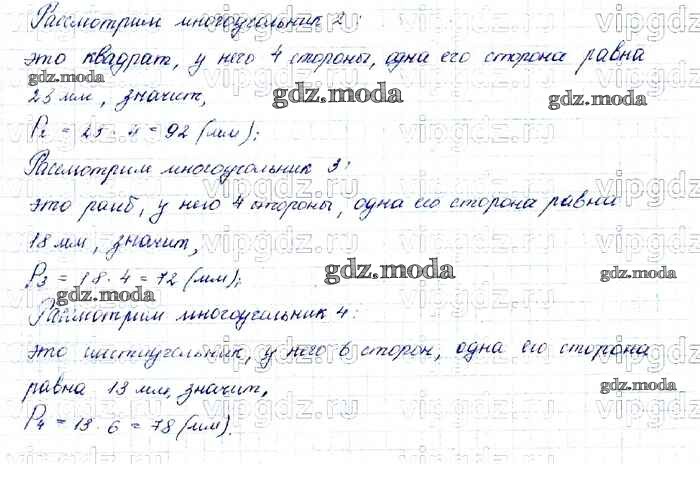 Рассмотрим многоугольник 2:
это квадрат, у него 4 стороны, одна его сторона равна
23 мм, значит,
P₂ = 23 · 4 = 92 (мм);
Рассмотрим многоугольник 3:
это ромб, у него 4 стороны, одна его сторона равна
18 мм, значит,
P₃ = 18 · 4 = 72 (мм);
Рассмотрим многоугольник 4:
это шестиугольник, у него 6 сторон, одна его сторона
равна 13 мм, значит,
P₄ = 13 · 6 = 78 (мм).
gdz.moda
gdz.moda
gdz.moda
gdz.moda
gdz.moda
gdz.moda
gdz.moda
gdz.moda
gdz.moda
vipgdz.ru